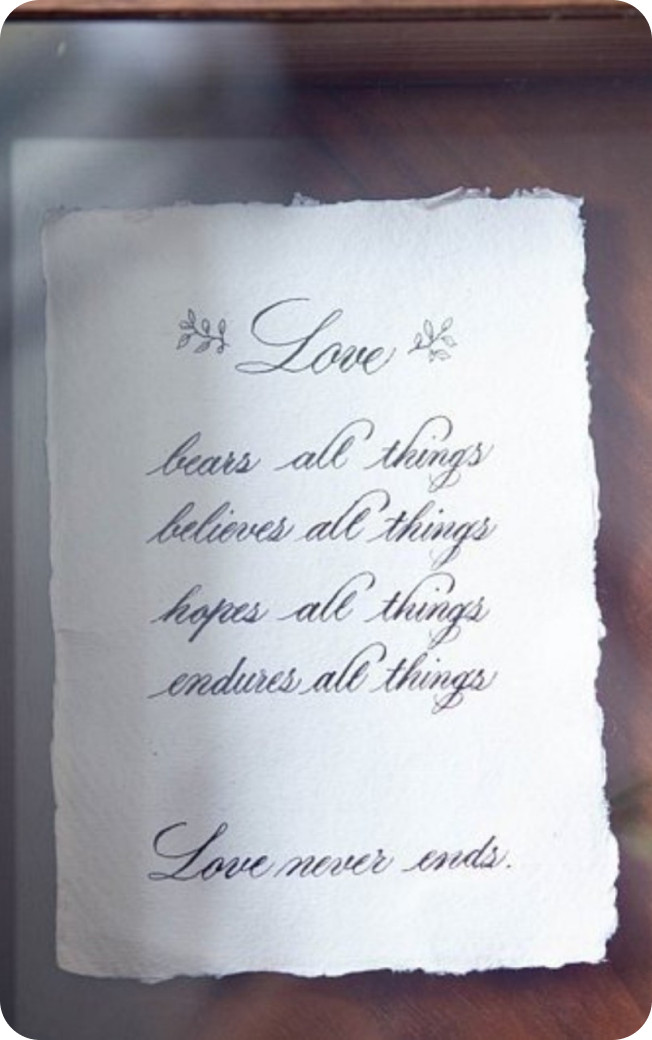 Love
bears all things
believes all things
hopes all things
endures all things
Love never ends.